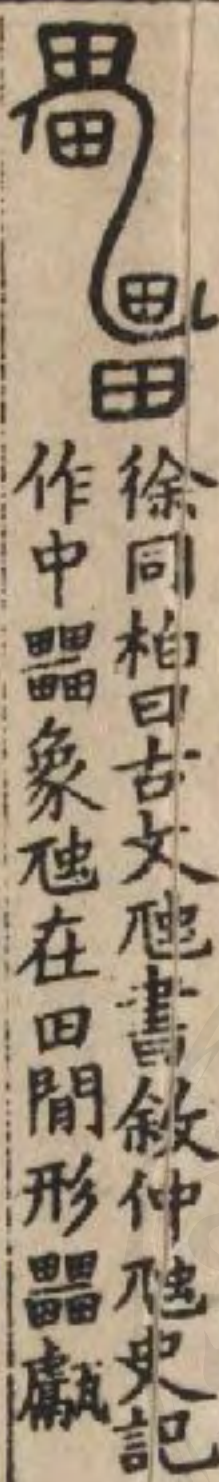 徐同柏曰古文虺書敘仲虺史記
作中𤳳象虺在田間形𤳳甗